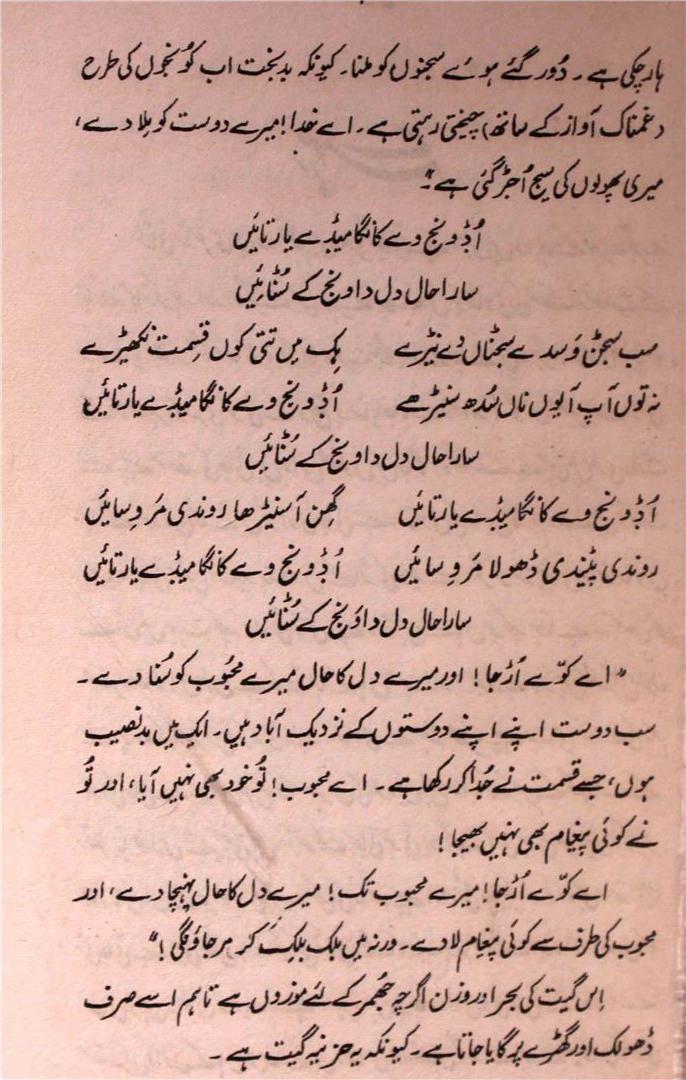 ہار چکی ہے۔ دُور گئے ہوئے سجنوں کو ملنا۔ کیونکہ بدبخت اب کُونجوں کی طرح
(غمناک آواز کے ساتھ) چیختی رہتی ہے۔ اے خدا! میرے دوست کو ملا دے،
میری پھولوں کی سیج اُجڑ گئی ہے"۔
اُڈ ونج وے کانگا میڈے یار تائیں
سارا حال دل دا ونج کے سُنائیں
سب سجّن وَسدے سجّناں دے نیڑے ہِک میں تتی کوں قسمت نکھیڑے
نہ توں آپ آیوں ناں سُدھ سنیڑھے اُڈ ونج وے کانگا میڈے یار تائیں
سارا حال دل دا ونج کے سُنائیں
اُڈ ونج وے کانگا میڈے یار تائیں گھِن آ سنیڑھا روندی مَر وِسائیں
روندی پٹیندی ڈھولا مَر وِسائیں اُڈ ونج وے کانگا میڈے یار تائیں
سارا حال دل دا ونج کے سُنائیں
"اے کوّے اُڑ جا! اور میرے دل کا حال میرے محبُوب کو سُنا دے۔
سب دوست اپنے اپنے دوستوں کے نزدیک آباد ہیں۔ ایک میں بدنصیب
ہوں، جسے قسمت نے جُدا کر رکھا ہے۔ اے محبوب! تُو خود بھی نہیں آیا، اور تُو
نے کوئی پیغام بھی نہیں بھیجا!
اے کوّے اُڑ جا! میرے محبوب تک! میرے دل کا حال پہنچا دے، اور
محبوب کی طرف سے کوئی پیغام لا دے۔ ورنہ میں بلک بلِک کر مر جاؤنگی!"
اِس گیت کی بحر اور وزن اگرچہ جھُمر کے لئے موزوں ہے تاہم اسے صرف
ڈھولک اور گھڑے پر گایا جاتا ہے۔ کیونکہ یہ حزنیہ گیت ہے۔